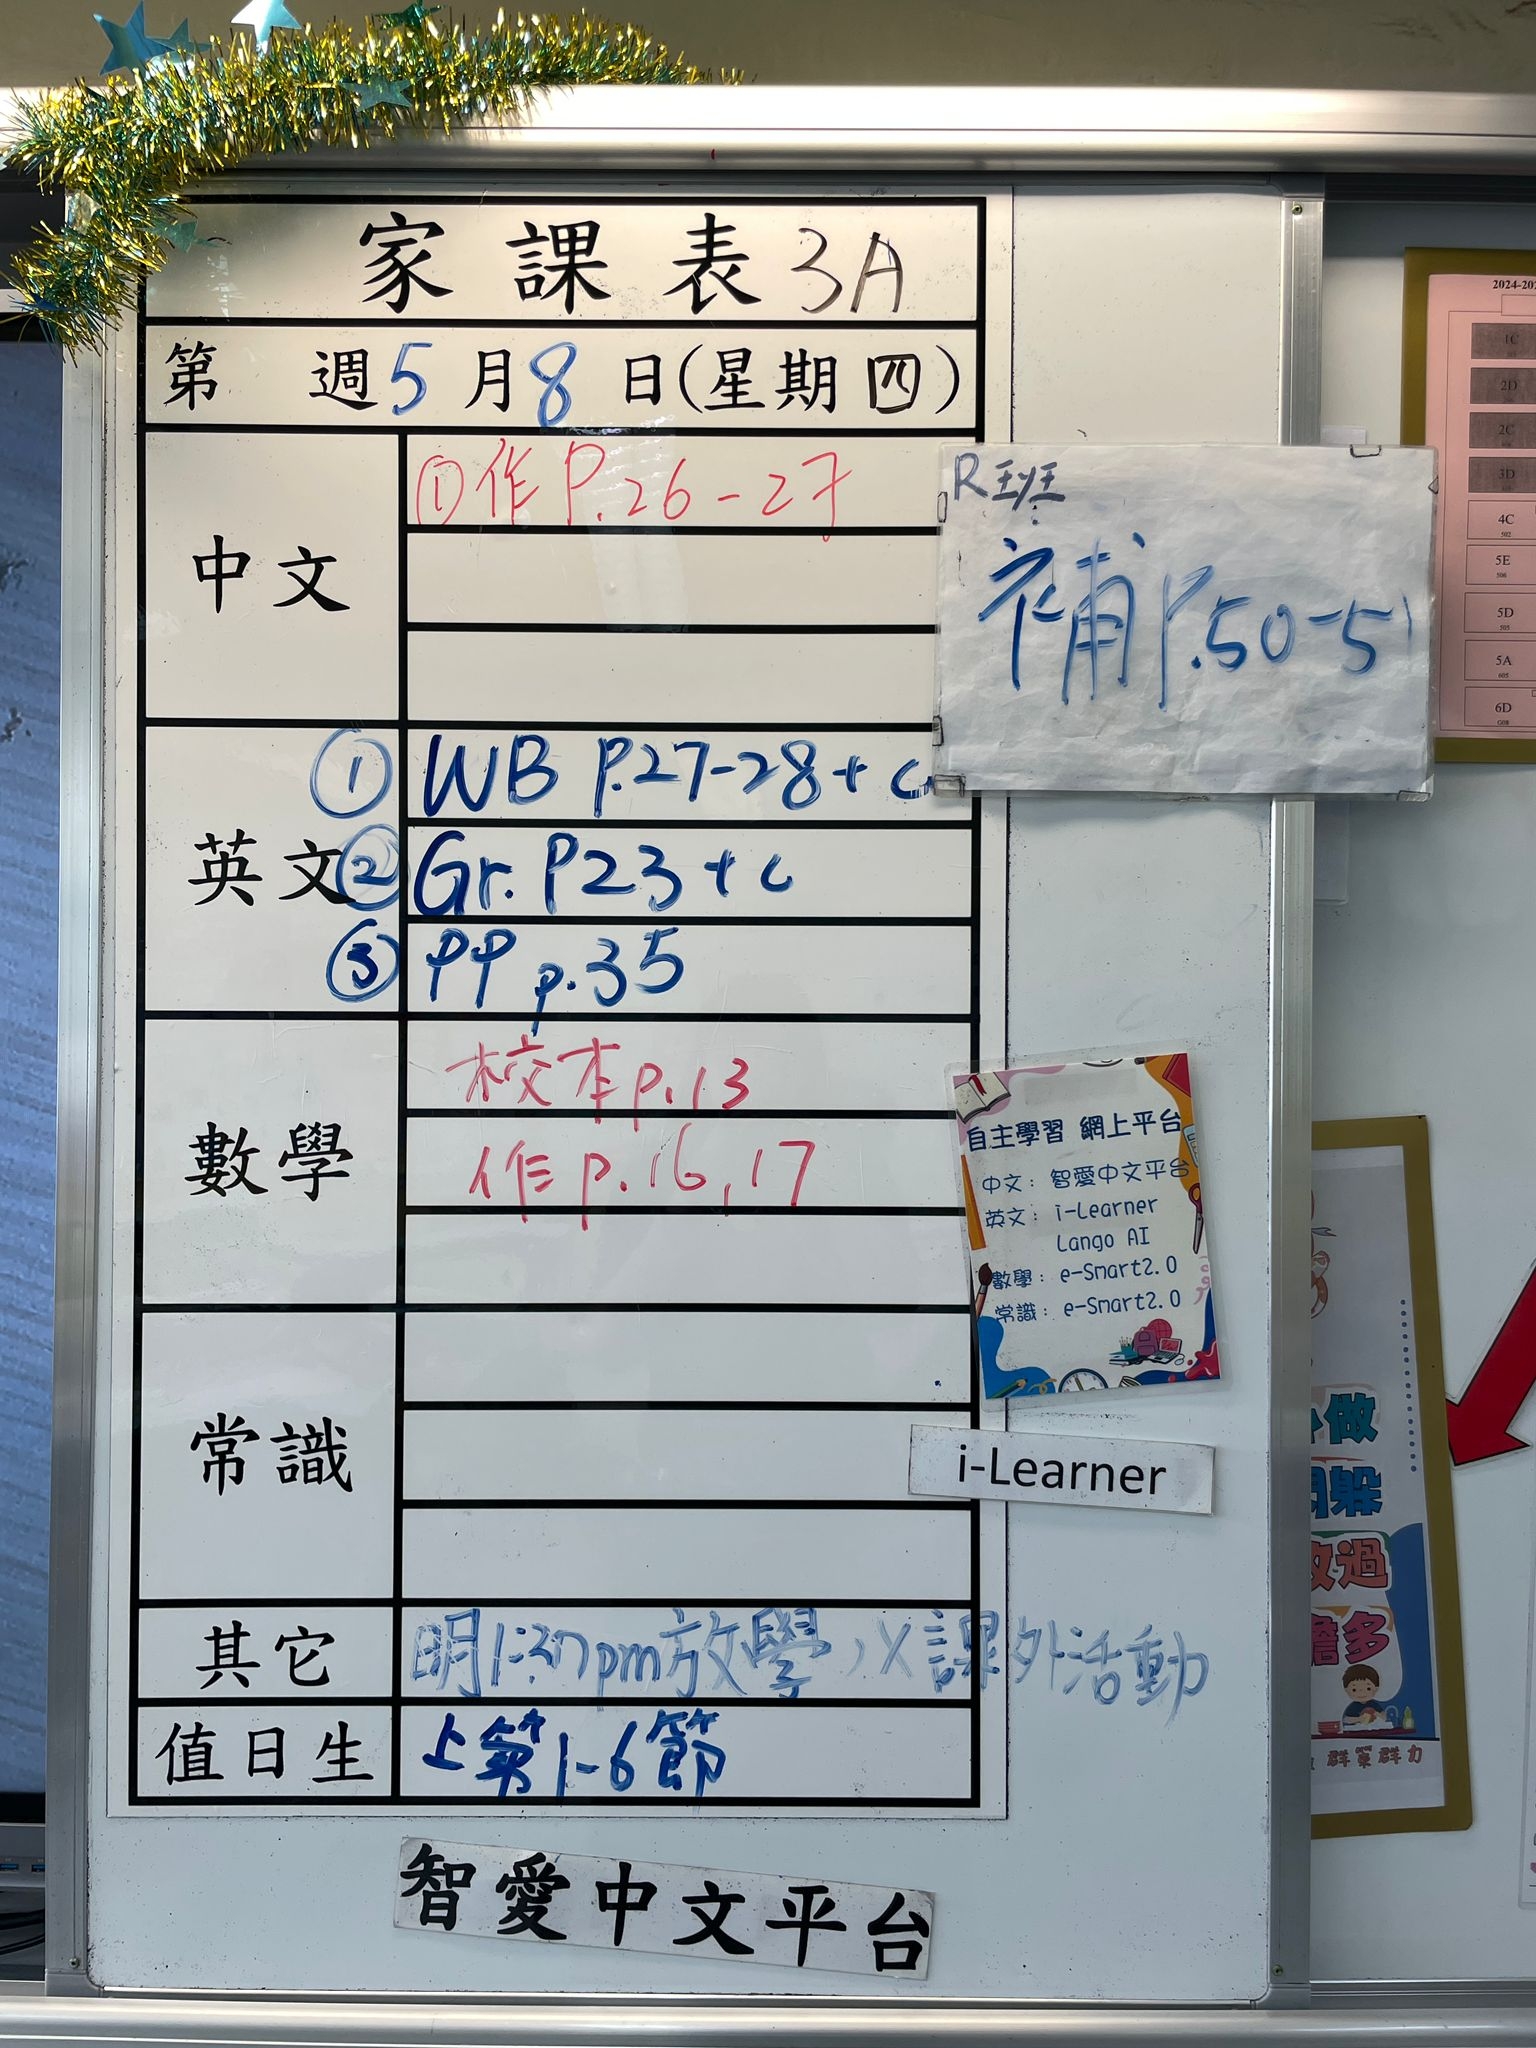 家課表 3A
第 週 5 月 8 日(星期四)
中文
① 作 P.26-27
R班
補 P.50-51
英文
① WB P.27-28 + c
② Gr. P23 + c
③ PP p.35
數學
校本 p.13
作 p.16,17
常識
其它
明1:30pm放學，X課外活動
值日生
上第1-6節
智愛中文平台
自主學習 網上平台
中文：智愛中文平台
英文：i-Learner
Lango AI
數學：e-Smart2.0
常識：e-Smart2.0
i-Learner
1C
2D
2C
3D
4C
502
5E
506
5D
505
5A
605
6D
G08
做
躲
過
多
群策群力